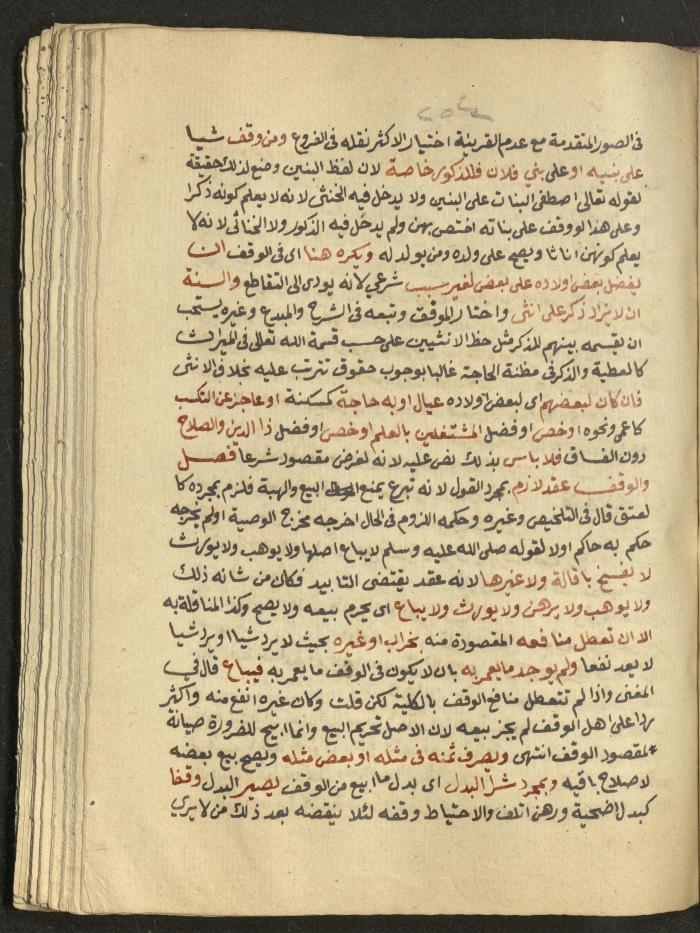 في الصور المتقدمة مع عدم القرينة اختيار الاكثر نقله في الفروع ومن وقف شيا
على بنيه او على بني فلان فللذكور خاصة لان لفظ البنين وضع لذلك حقيقة
لقوله تعالى اصطفى البنات على البنين ولا يدخل فيه الخنثى لانه لا يعلم كونه ذكرا
وعلى هذا لو وقف على بناته اختص بهن ولم يدخل فيه الذكور ولا الخناثى لانه لا
يعلم كونهن اناثا ويصح على ولده ومن يولد له ويكره هنا اي في الوقف ان
يفضل بعض اولاده على بعض لغير سبب شرعي لانه يودى الى التقاطع والسنة
ان لا يزاد ذكر على انثى واختار الموفق وتبعه في الشرح والمبدع وغيره يستحب
ان يقسمه بينهم للذكر مثل حظ الانثيين على حسب قسمة الله تعالى في الميراث
كالعطية والذكر في مظنة الحاجة غالبا بوجوب حقوق تترتب عليه بخلاف الانثى
فان كان لبعضهم اي لبعض اولاده عيال او به حاجة كمسكنة او عاجز عن التكسب
كاعمى ونحوه او خص او فضل المشتغلين بالعلم او خص او فضل ذا الدين والصلاح
دون الفساق فلا باس بذلك نص عليه لانه لغرض مقصود شرعا فصل
والوقف عقد لازم بمجرد القول لانه تبرع يمنع البيع والهبة فلزم بمجرده كا
لعتق قال في التلخيص وغيره وحكمه اللزوم في الحال اخرجه مخرج الوصية او لم يخرجه
حكم به حاكم اولا لقوله صلى الله عليه وسلم لا يباع اصلها ولا يوهب ولا يورث
لا يفسخ باقالة ولا غيرها لانه عقد يقتضي التابيد فكان من شانه ذلك
ولا يوهب ولا يرهن ولا يورث ولا يباع اي يحرم بيعه ولا يصح وكذا المناقلة به
الا ان تعطل منافعه المقصودة منه بخراب او غيره بحيث لا يرد شيا او يرد شيا
لا يعد نفعا ولم يوجد ما يعمر به بان لا يكون في الوقف ما يعمر به فيباع قال في
المغني واذا لم تتعطل منافع الوقف بالكلية لكن قلت وكان غيره انفع منه واكثر
ردا على اهل الوقف لم يجز بيعه لان الاصل تحريم البيع وانما ابيح للضرورة صيانة
لمقصود الوقف انتهى ويصرف ثمنه في مثله او بعض مثله ويصح بيع بعضه
لاصلاح باقيه وبمجرد شرا البدل اي بدل ما ابيع من الوقف يصير البدل وقفا
كبدل اضحية ورهن اتلف والاحتياط وقفه لئلا ينقضه بعد ذلك من لا يرى